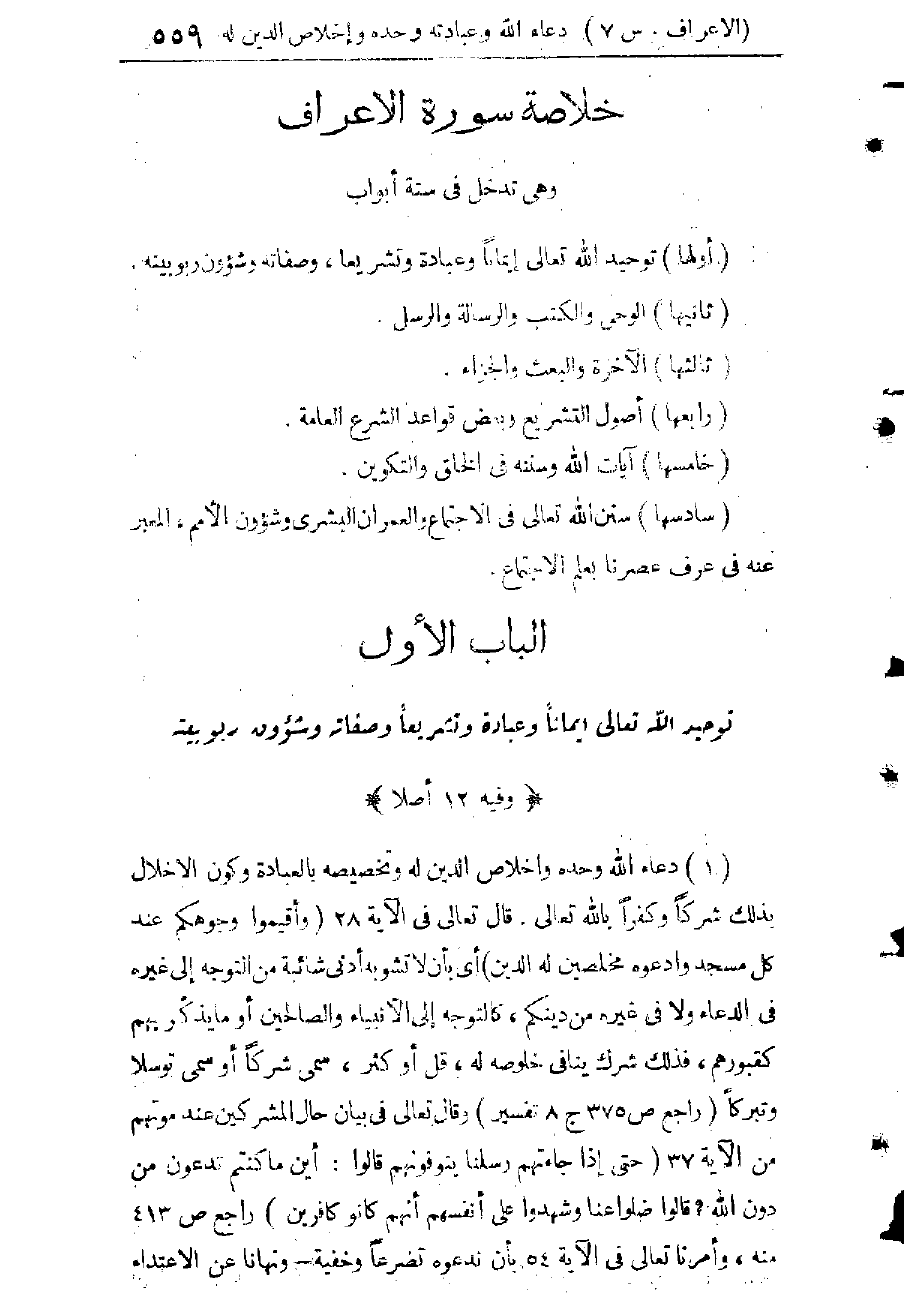 (الاعراف . س ٧) دعاء الله وعبادته وحده وإخلاص الدين له ٥٥٩
خلاصة سورة الاعراف
وهى تدخل فى ستة أبواب
(أولها) توحيد الله تعالى إيماناً وعبادة وتشريعا، وصفاته وشؤون ربوبيته.
(ثانيها) الوحى والكتب والرسالة والرسل.
(ثالثها) الآخرة والبعث والجزاء.
(رابعها) أصول التشريع وبعض قواعد الشرع العامة.
(خامسها) آيات الله وسننه فى الخلق والتكوين.
(سادسها) سنن الله تعالى فى الاجتماع والعمران البشرى وشؤون الأمم، المعبر
عنه فى عرف عصرنا بعلم الاجتماع.
الباب الأول
توحيد الله تعالى ايماناً وعبادة وتشريعاً وصفاته وشؤون ربوبيته
﴿ وفيه ١٢ أصلا ﴾
(١) دعاء الله وحده واخلاص الدين له وتخصيصه بالعبادة وكون الاخلال
بذلك شركاً وكفراً بالله تعالى. قال تعالى فى الآية ٢٨ (وأقيموا وجوهكم عند
كل مسجد وادعوه مخلصين له الدين) أى بأن لا تشوبه أدنى شائبة من التوجه إلى غيره
فى الدعاء ولا فى غيره من دينكم، كالتوجه إلى الآنبياء والصالحين أو ما يذكّر بهم
كقبورهم، فذلك شرك ينافى خلوصه له، قل أو كثر، سمى شركاً أو سمى توسلا
وتبركاً (راجع ص ٣٧٥ ج ٨ تفسير) وقال تعالى فى بيان حال المشركين عند موتهم
من الآية ٣٧ (حتى إذا جاءتهم رسلنا يتوفونهم قالوا: أين ما كنتم تدعون من
دون الله؟ قالوا ضلوا عنا وشهدوا على أنفسهم أنهم كانو كافرين) راجع ص ٤١٣
منه، وأمرنا تعالى فى الآية ٥٤ بأن ندعوه تضرعاً وخفية — ونهانا عن الاعتداء